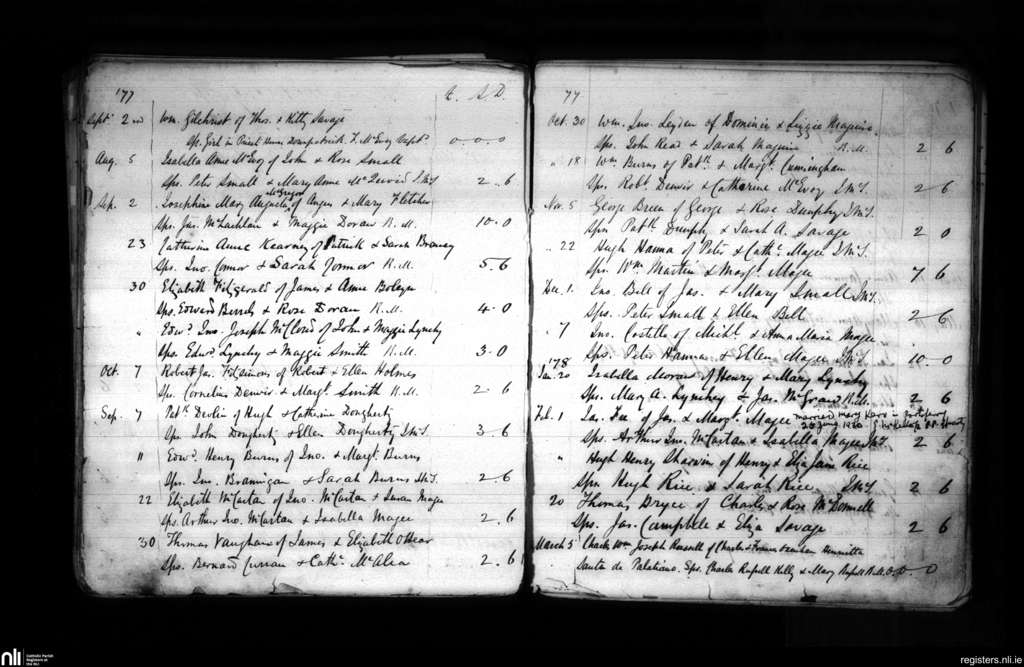 '77 £. S. D.
Sept 2nd Wm. Gilchrist of Thos. & Kitty Savage
Sp. Girl in Priest House Downpatrick F. McEvoy Bapt. 0.0.0
Aug. 5 Isabella Anne McEvoy of John & Rose Small
Sps. Peter Small & Mary Anne McDenvir 2..6
Sep. 2 Josephine Mary Augusta McGregor of Angus & Mary Fletcher
Sps. Jas. McLachlan & Maggie Doran R.M. 10.0
23 Catherine Anne Kearney of Patrick & Sarah
Sps. Jno. Connor & Sarah Connor R.M. 5.6
30 Elizabeth Fitzgerald of James & Anne Boleyn
Sps. Edward & Rose Doran R.M. 4.0
" Edwd. Jno. Joseph of John & Maggie Lynchy
Sps. Edwd. Lynchy & Maggie Smith R.M. 3.0
Oct. 7 Robert Jas. Fitzsimons of Robert & Ellen Holmes
Sps. Cornelius Denvir & Margt. Smith R.M. 2.6
Sep. 7 Patk. Devlin of Hugh & Catherine Dougherty
Sps. John Dougherty & Ellen Dougherty 3.6
" Edwd. Henry Burns of Jno. & Margt. Burns
Sps. Jno. Brannigan & Sarah Burns 2.6
22 Elizabeth McCartan of Jno. McCartan & Susan Magee
Sps. Arthur Jno. McCartan & Isabella Magee 2.6
30 Thomas Vaughan of James & Elizabeth O'Hear
Sps. Bernard Curran & Cathe. McAlea 2.6
77
Oct. 30 Wm. Jno. Leyden of Dominic & Lizzie Maguire.
Sps. John Read & Sarah Maguire R.M. 2 6
" 18 Wm Burns of Patk. & Margt. Cunningham
Sps. Robt Denvir & Catharine McEvoy 2 6
Nov. 5 George Breen of George & Rose Dumphy
Sps. Patk & Sarah A. Savage 2 0
" 22 Hugh Hanna of Peter & Cathe. Magee
Sps. Wm. Martin & Margt. Magee 7 6
Dec. 1. Jno. Bell of Jas. & Mary Small
Sps. Peter Small & Ellen Bell 2 6
" 7 Jno. Costello of Michl. & Anna Maria Magee
Sps. Peter Hanna & Ellen Magee 10.0
'78
Jan. 20 Isabella Moran of Henry & Mary Lynchy
Sps. Mary A. Lynchey & Jas. McGraw R.M. 2 6
Feb. 1 Jas. of Jas. & Margt. Magee married Mary in
20 June 1920
Sps. Arthur Jno. McCartan & Isabella Magee 2 6
" Hugh Henry of Henry & Eliza Jane Rice
Sps. Hugh Rice & Sarah Rice. 2 6
20 Thomas Bryce of Charles & Rose McDonnell
Sps. Jas. Campbell & Eliza Savage 2 6
March 5 Charles Wm. Joseph Russell of Charles Henrietta
Santa de Palatiano. Sps. Charles Russell Kelly & Mary Russell R.M. 0.0.0
nli Catholic Parish Registers at the NLI
registers.nli.ie